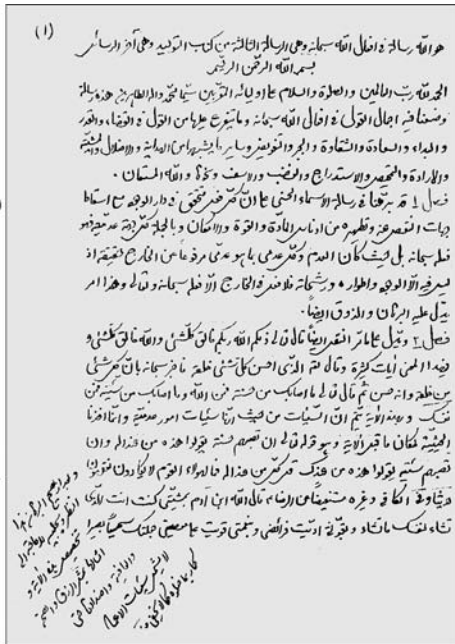 (١)
هو الله رسالة في افعال الله سبحانه وهي الرسالة الثالثة من كتاب التوحيد وهي آخر الرسائل
بسم الله الرحمن الرحيم
الحمد لله رب العالمين والصلوة والسلام على اوليائه المقربين سيما محمد واله الطاهرين هذه رسالة
وضعنا فيه اجمال القول في افعال الله سبحانه وما يتفرع عليها من القول في القضاء والقدر
والبداء والسعادة والشقاوة والجبر والتفويض وساير ما يشبهها من الهداية والاضلال والمشية
والارادة والتمحيص والاستدراج والغضب والاسف ونحوها والله المستعان.
فصل ١ قد برهنا في رسالة الاسماء الحسنى على ان كل فعل متحقق في دار الوجود مع اسقاط
جهات النقص عنه وتطهيره من ادناس المادة والقوة والامكان وبالجملة كل جهة عدمية فهو
فعله سبحانه بل حيث كان العدم وكل عدمي بما هو عدمي مرفوعا عن الخارج حقيقة اذ
ليس فيه الا الوجود واطواره ورشحاته فلا فعل في الخارج الا فعله سبحانه وتعالى وهذا امر
يدل عليه البرهان والذوق ايضاً.
فصل ٢ ويدل على ما مر النقل ايضاً قال تعالى ذلكم الله ربكم خالق كل شئ والله خالق كل شئ و
هذا المعنى آيات كثيرة وقال تعالى الذي احسن كل شئ خلقه فاخبر سبحانه بان كل شئ
من خلقه وانه حسن ثم قال تعالى ما اصابك من حسنة فمن الله وما اصابك من سيئة فمن
نفسك الآية ان السيئات من حيث انها سيئات امور عدمية وانما اخذنا
الحيثية لمكان ما قبل الآية وهو قوله تعالى ان تصبهم حسنة يقولوا هذه من عند الله وان
تصبهم سيئة يقولوا هذه من عندك قل كل من عند الله فما لهؤلاء القوم لا يكادون يفقهون
حديثا وفي الكافي وغيره مستفيضاً عن الرضا ع قال الله ابن آدم بمشيتي كنت انت الذي
تشاء لنفسك ما تشاء وبقوتي اديت فرائضي وبنعمتي قويت على معصيتي جعلتك سميعاً بصيرا